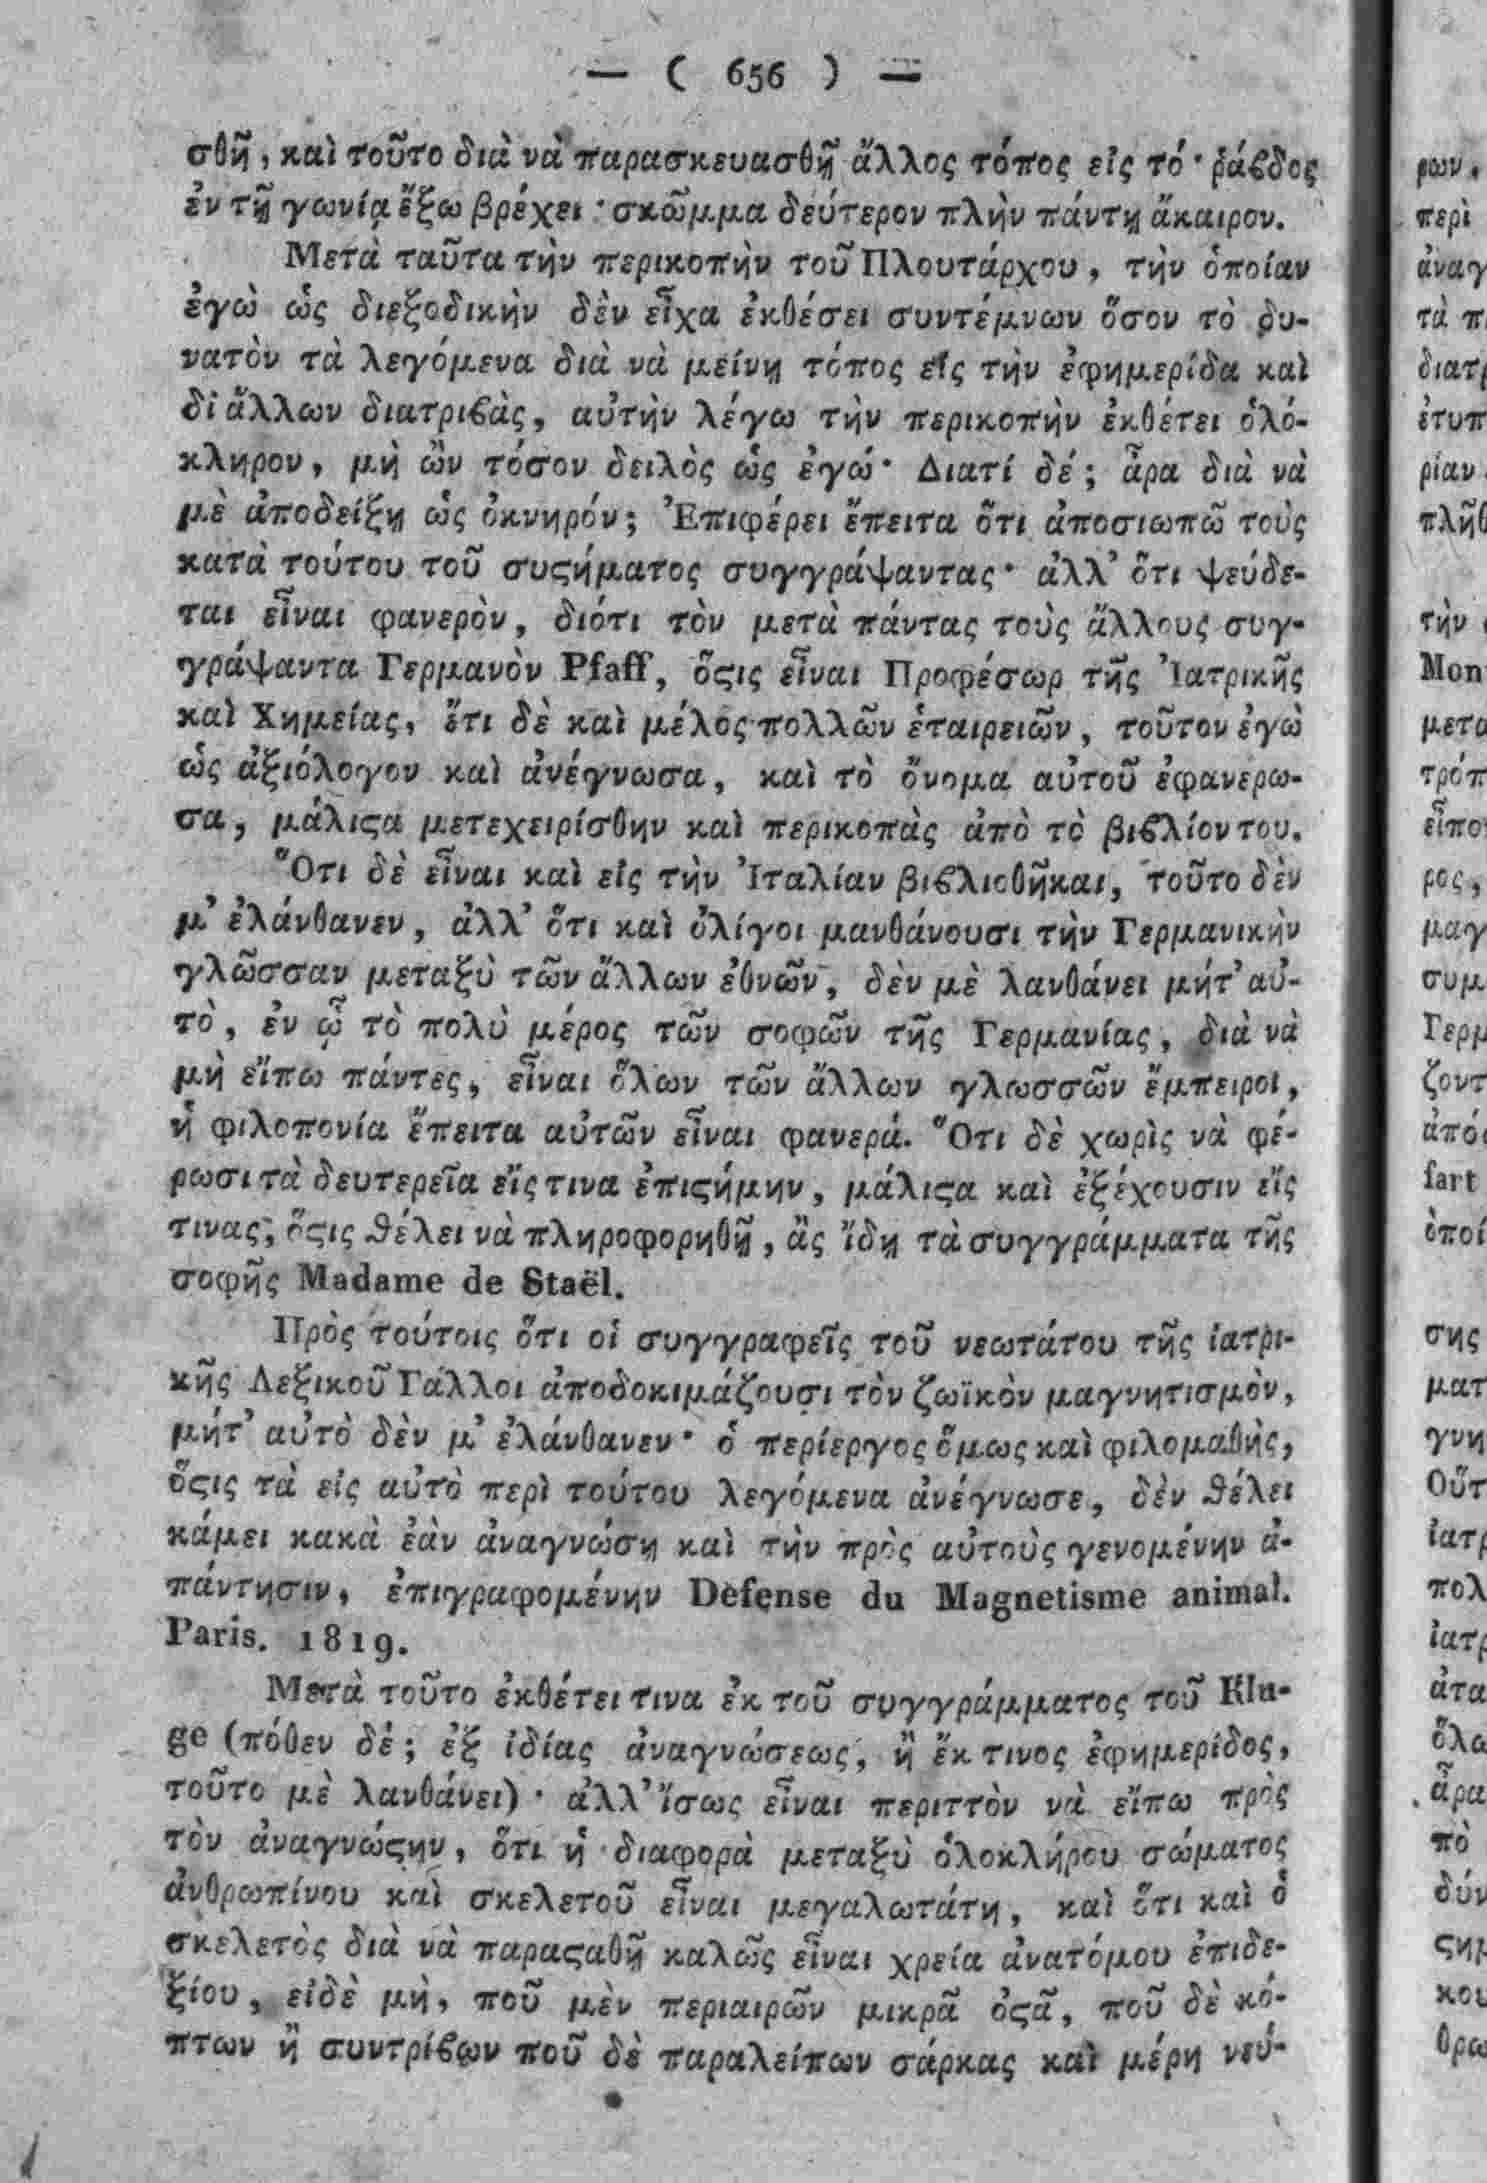 — ( 656 ) —
σθῇ, καὶ τοῦτο διὰ νὰ παρασκευασθῇ ἄλλος τόπος εἰς τό· ῥάϐδος
ἐν τῇ γωνίᾳ ἔξω βρέχει· σκῶμμα δεύτερον πλὴν πάντῃ ἄκαιρον.
Μετὰ ταῦτα τὴν περικοπὴν τοῦ Πλουτάρχου, τὴν ὁποίαν
ἐγὼ ὡς διεξοδικὴν δὲν εἶχα ἐκθέσει συντέμνων ὅσον τὸ δυ-
νατὸν τὰ λεγόμενα διὰ νὰ μείνῃ τόπος εἰς τὴν ἐφημερίδα καὶ
δἰ ἄλλων διατριϐὰς, αὐτὴν λέγω τὴν περικοπὴν ἐκθέτει ὁλό-
κληρον, μὴ ὢν τόσον δειλὸς ὡς ἐγώ· Διατί δέ; ἆρα διὰ νὰ
μὲ ἀποδείξῃ ὡς ὀκνηρόν; Ἐπιφέρει ἔπειτα ὅτι ἀποσιωπῶ τοὺς
κατὰ τούτου τοῦ συϛήματος συγγράψαντας· ἀλλ' ὅτι ψεύδε-
ται εἶναι φανερὸν, διότι τὸν μετὰ πάντας τοὺς ἄλλους συγ-
γράψαντα Γερμανὸν Pfaff, ὅϛις εἶναι Προφέσωρ τῆς Ἰατρικῆς
καὶ Χημείας, ἔτι δὲ καὶ μέλος πολλῶν ἑταιρειῶν, τοῦτον ἐγὼ
ὡς ἀξιόλογον καὶ ἀνέγνωσα, καὶ τὸ ὄνομα αὐτοῦ ἐφανερω-
σα, μάλιϛα μετεχειρίσθην καὶ περικοπὰς ἀπὸ τὸ βιϐλίον του.
Ὅτι δὲ εἶναι καὶ εἰς τὴν Ἰταλίαν βιϐλιοθῆκαι, τοῦτο δὲν
μ' ἐλάνθανεν, ἀλλ' ὅτι καὶ ὀλίγοι μανθάνουσι τὴν Γερμανικὴν
γλῶσσαν μεταξὺ τῶν ἄλλων ἐθνῶν, δὲν μὲ λανθάνει μήτ' αὐ-
τὸ, ἐν ᾧ τὸ πολὺ μέρος τῶν σοφῶν τῆς Γερμανίας, διὰ νὰ
μὴ εἴπω πάντες, εἶναι ὅλων τῶν ἄλλων γλωσσῶν ἔμπειροι,
ἡ φιλοπονία ἔπειτα αὐτῶν εἶναι φανερά. Ὅτι δὲ χωρὶς νὰ φέ-
ρωσι τὰ δευτερεῖα εἴς τινα ἐπιϛήμην, μάλιϛα καὶ ἐξέχουσιν εἴς
τινας, ὅϛις θέλει νὰ πληροφορηθῇ, ἂς ἴδῃ τὰ συγγράμματα τῆς
σοφῆς Madame de Staël.
Πρὸς τούτοις ὅτι οἱ συγγραφεῖς τοῦ νεωτάτου τῆς ἰατρι-
κῆς Λεξικοῦ Γάλλοι ἀποδοκιμάζουσι τὸν ζωϊκὸν μαγνητισμὸν,
μήτ' αὐτὸ δὲν μ' ἐλάνθανεν· ὁ περίεργος ὅμως καὶ φιλομαθὴς,
ὅϛις τὰ εἰς αὐτὸ περὶ τούτου λεγόμενα ἀνέγνωσε, δὲν θέλει
κάμει κακὰ ἐὰν ἀναγνώσῃ καὶ τὴν πρὸς αὐτοὺς γενομένην ἀ-
πάντησιν, ἐπιγραφομένην Defense du Magnetisme animal.
Paris. 1819.
Μετὰ τοῦτο ἐκθέτει τινα ἐκ τοῦ συγγράμματος τοῦ Klu-
ge (πόθεν δέ; ἐξ ἰδίας ἀναγνώσεως, ἢ ἔκ τινος ἐφημερίδος,
τοῦτο μὲ λανθάνει)· ἀλλ' ἴσως εἶναι περιττὸν νὰ εἴπω πρὸς
τὸν ἀναγνώϛην, ὅτι ἡ διαφορὰ μεταξὺ ὁλοκλήρου σώματος
ἀνθρωπίνου καὶ σκελετοῦ εἶναι μεγαλωτάτη, καὶ ὅτι καὶ ὁ
σκελετὸς διὰ νὰ παραϛαθῇ καλῶς εἶναι χρεία ἀνατόμου ἐπιδε-
ξίου, εἰδὲ μὴ, ποῦ μὲν περιαιρῶν μικρᾶ ὀϛᾶ, ποῦ δὲ κό-
πτων ἢ συντρίϐων ποῦ δὲ παραλείπων σάρκας καὶ μέρη νεύ-
ρων,
περὶ
τὴν
Mon